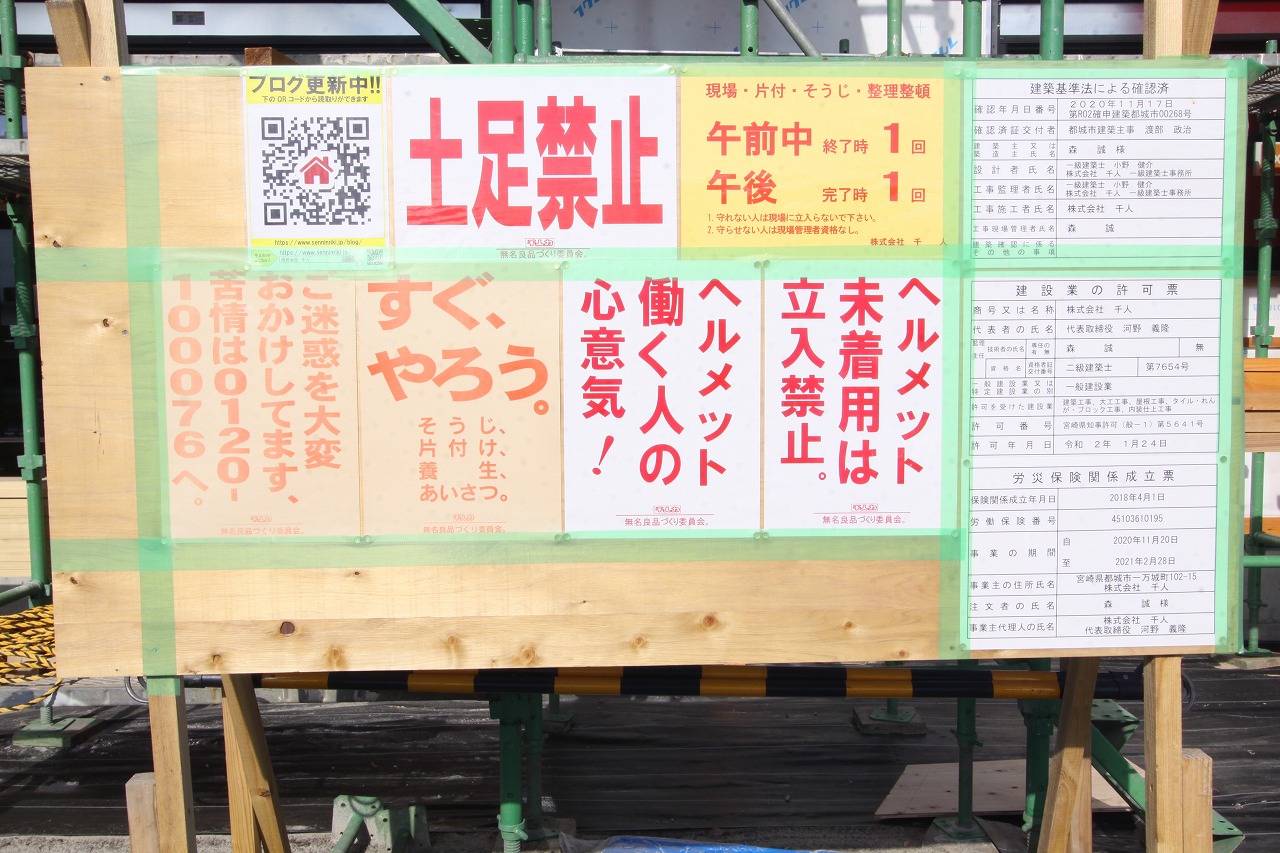 ブログ更新中!!
下のQRコードから読取りができます
https://www.senninriki.jp/blog/
https://www.senninriki.jp/
土足禁止
千人力
無名良品づくり委員会。
現場・片付・そうじ・整理整頓
午前中 終了時 1回
午後 完了時 1回
1. 守れない人は現場に立入らないで下さい。
2. 守らせない人は現場管理者資格なし。
株式会社 千 人
ご迷惑を大変
おかけしてます、
苦情は0120-
100076へ。
無名良品づくり委員会。
すぐ、
やろう。
そうじ、
片付け、
養生、
あいさつ。
無名良品づくり委員会。
ヘルメット
働く人の
心意気!
千人力
無名良品づくり委員会。
ヘルメット
未着用は
立入禁止。
千人力
無名良品づくり委員会。
建築基準法による確認済
確認年月日番号 2020年11月17日
第R02確申建築都城市00268号
確認済証交付者 都城市建築主事 渡部 政治
建築主又は
築造主氏名 森 誠 様
設計者氏名 一級建築士 小野 健介
株式会社 千人 一級建築士事務所
工事監理者氏名 一級建築士 小野 健介
株式会社 千人 一級建築士事務所
工事施工者氏名 株式会社 千人
工事現場管理者氏名 森 誠
建築確認に係る
その他の事項
建設業の許可票
商号又は名称 株式会社 千人
代表者の氏名 代表取締役 河野 義隆
主任 技術者の氏名 専任の有無 森 誠 無
資格名 資格者証交付番号 二級建築士 第7654号
一般建設業又は
特定建設業の別 一般建設業
許可を受けた建設業 建築工事、大工工事、屋根工事、タイル・れん
が・ブロック工事、内装仕上工事
許可番号 宮崎県知事許可(般-1)第5641号
許可年月日 令和 2年 1月24日
労災保険関係成立票
保険関係成立年月日 2018年4月1日
労働保険番号 45103610195
事業の期間 自 2020年11月20日
至 2021年2月28日
事業主の住所氏名 宮崎県都城市一万城町102-15
株式会社 千人
注文者の氏名 森 誠 様
事業主代理人の氏名 株式会社 千人
代表取締役 河野 義隆